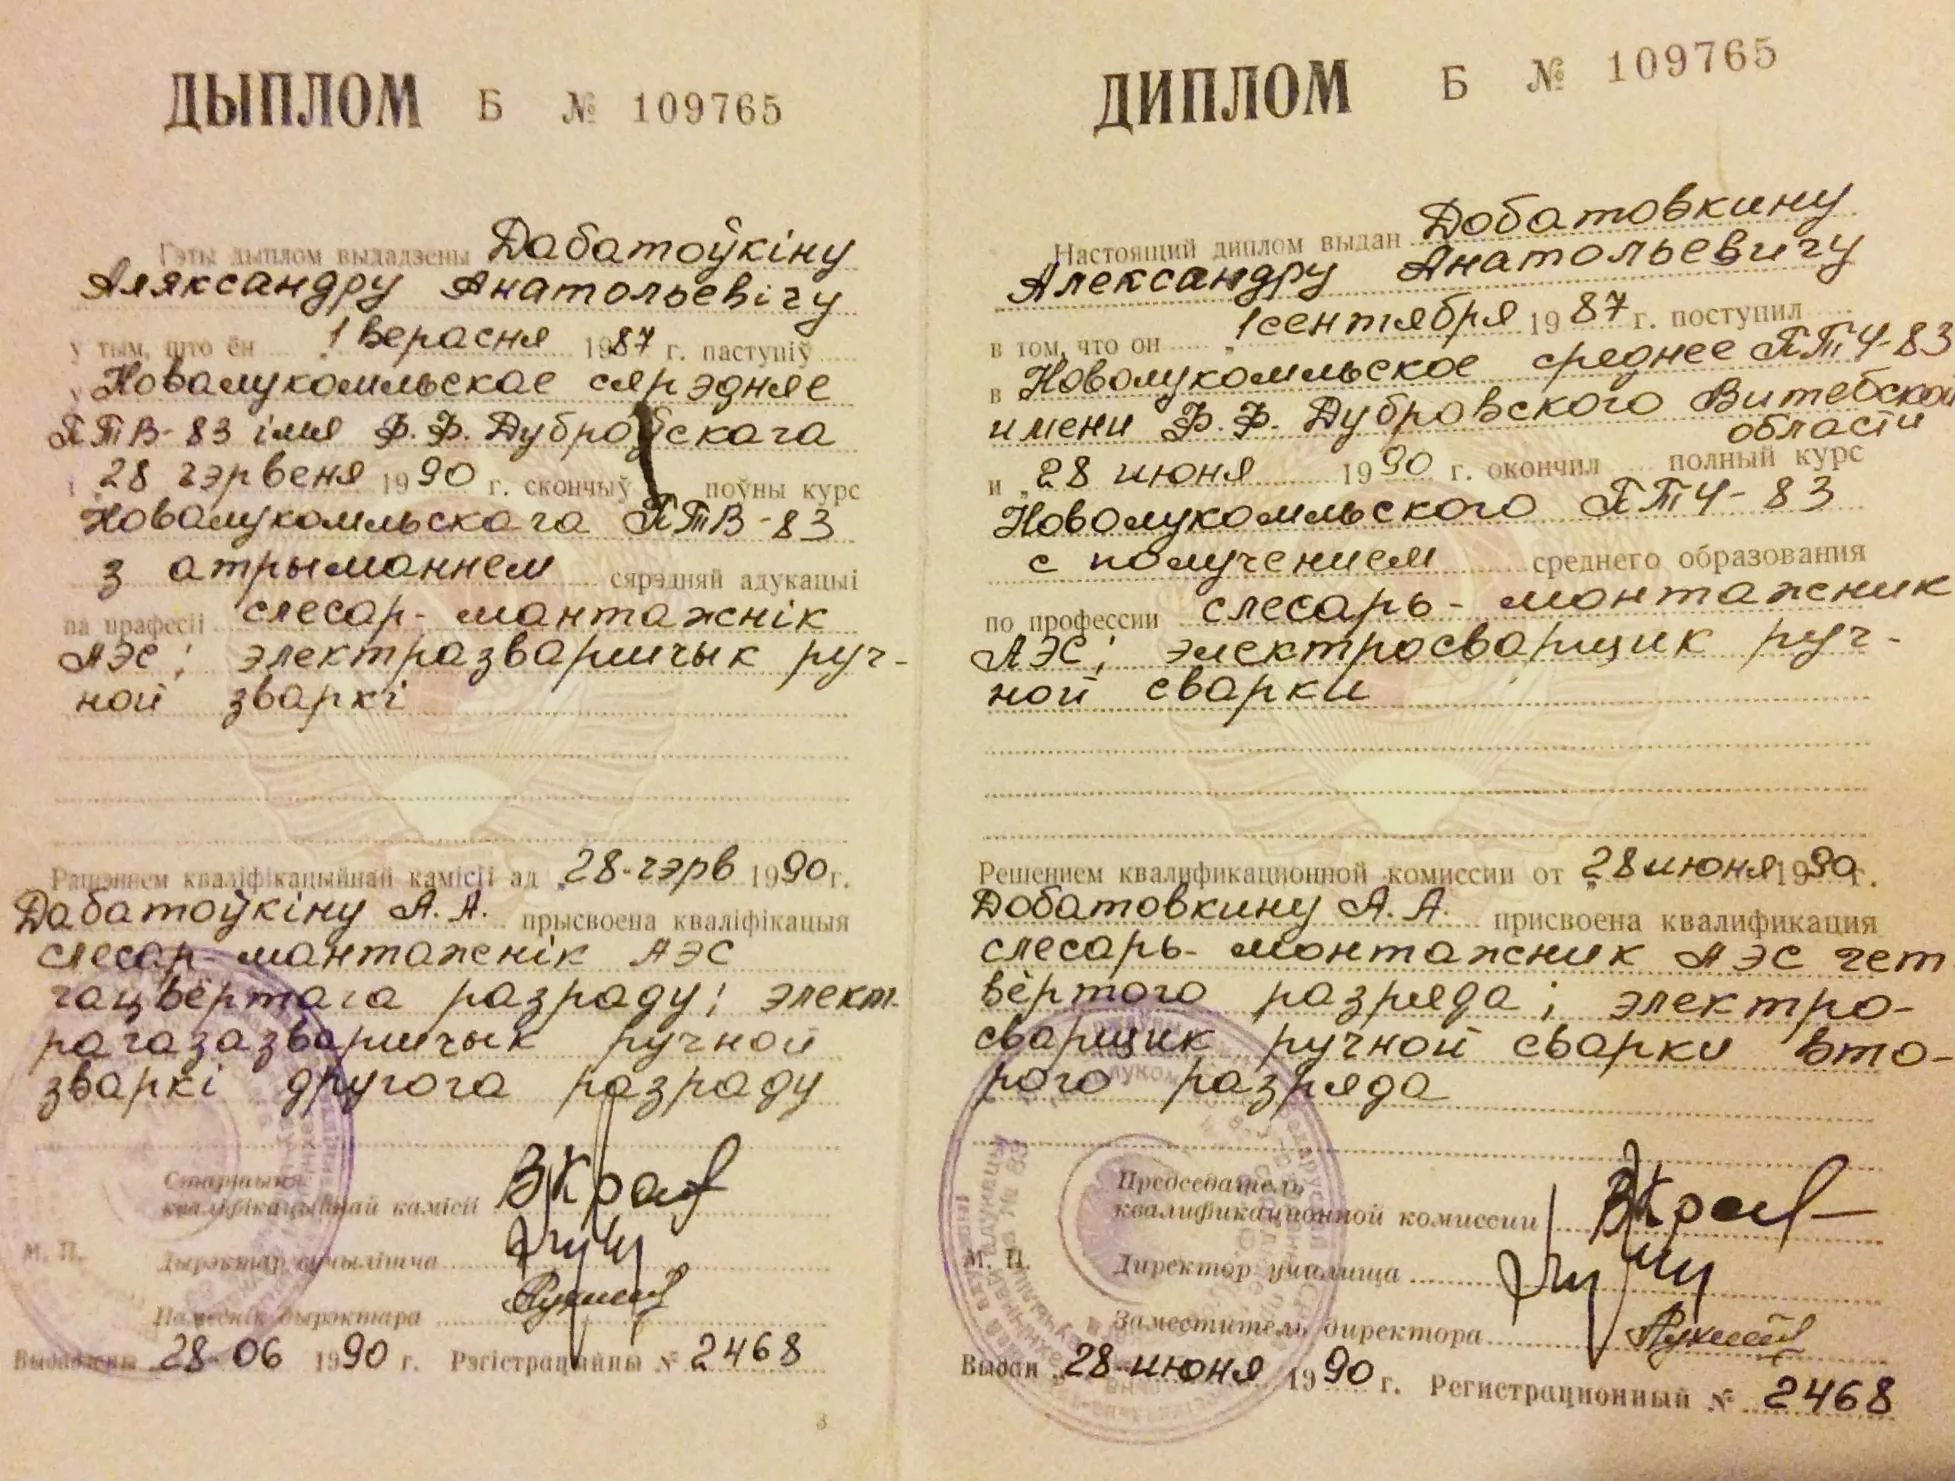 ДЫПЛОМ Б № 109765
Гэты дыплом выдадзены Дабатоўкіну
Аляксандру Анатольевічу
у тым, што ён 1 верасня 1987 г. паступіў
у Новалукомльскае сярэдняе
ПТВ-83 імя Ф.Ф. Дуброўскага
і 28 чэрвеня 1990 г. скончыў поўны курс
Новалукомльскага ПТВ-83
з атрыманнем сярэдняй адукацыі
па прафесіі слесар-мантажнік
АЭС; электразваршчык руч-
ной зваркі
Рашэннем кваліфікацыйнай камісіі ад „28-чэрв 1990 г.
Дабатоўкіну А.А. прысвоена кваліфікацыя
слесар-мантажнік АЭС
чацвёртага разраду; элект-
рагазазваршчык ручной
зваркі другога разраду
Старшыня
кваліфікацыйнай камісіі
Дырэктар вучылішча
М. П.
Намеснік дырэктара
Выдадзены 28-06 1990 г. Рэгістрацыйны № 2468
3
ДИПЛОМ Б № 109765
Настоящий диплом выдан Добатовкину
Александру Анатольевичу
в том, что он „1 сентября 1987 г. поступил
в Новолукомльское среднее ПТУ-83
имени Ф.Ф. Дубровского Витебской
области
и „28 июня 1990 г. окончил полный курс
Новолукомльского ПТУ-83
с получением среднего образования
по профессии слесарь-монтажник
АЭС; электросварщик руч-
ной сварки
Решением квалификационной комиссии от „28 июня 1990 г.
Добатовкину А.А. присвоена квалификация
слесарь-монтажник АЭС чет
вёртого разряда; электро-
сварщик ручной сварки вто-
рого разряда
Председатель
квалификационной комиссии
М. П.
Директор училища
Заместитель директора
Выдан „28-июня 1990 г. Регистрационный № 2468